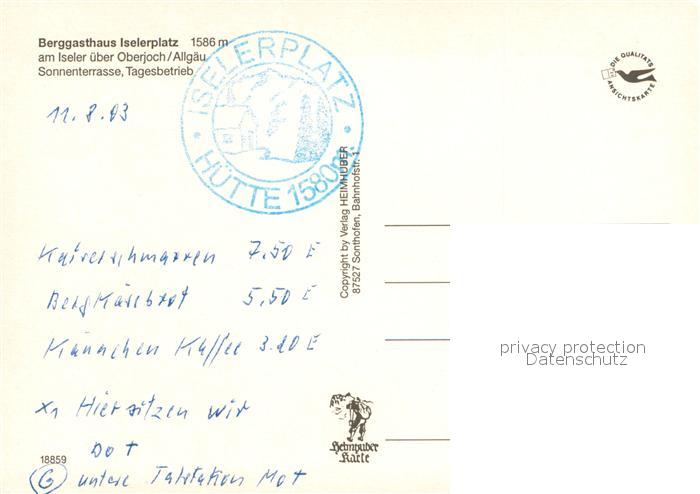 Berggasthaus Iselerplatz 1586 m
am Iseler über Oberjoch/Allgäu
Sonnenterrasse, Tagesbetrieb
ISELERPLATZ
HÜTTE 1580m
DIE QUALITÄTS
ANSICHTSKARTE
11.8.03
Copyright by Verlag HEIMHUBER
87527 Sonthofen, Bahnhofstr. 1
Kaiserschmarren 7,50 E
BergKäsebrot 5,50 E
Kännchen Kaffee 3.20 E
privacy protection
Datenschutz
x1 Hier sitzen wir
Dot
18859
G untere Talstation Mot
Heimhuber
Karte